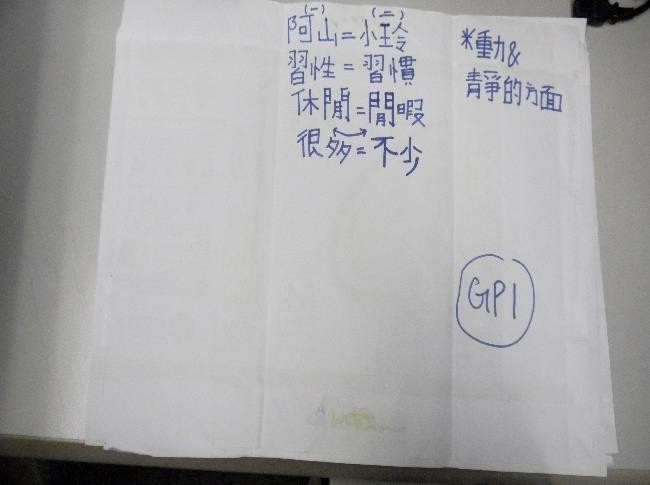 (一) (二)
阿山=小玲
習性=習慣
休閒=閒暇
很多=不少
*動&
青爭的方面
GP1